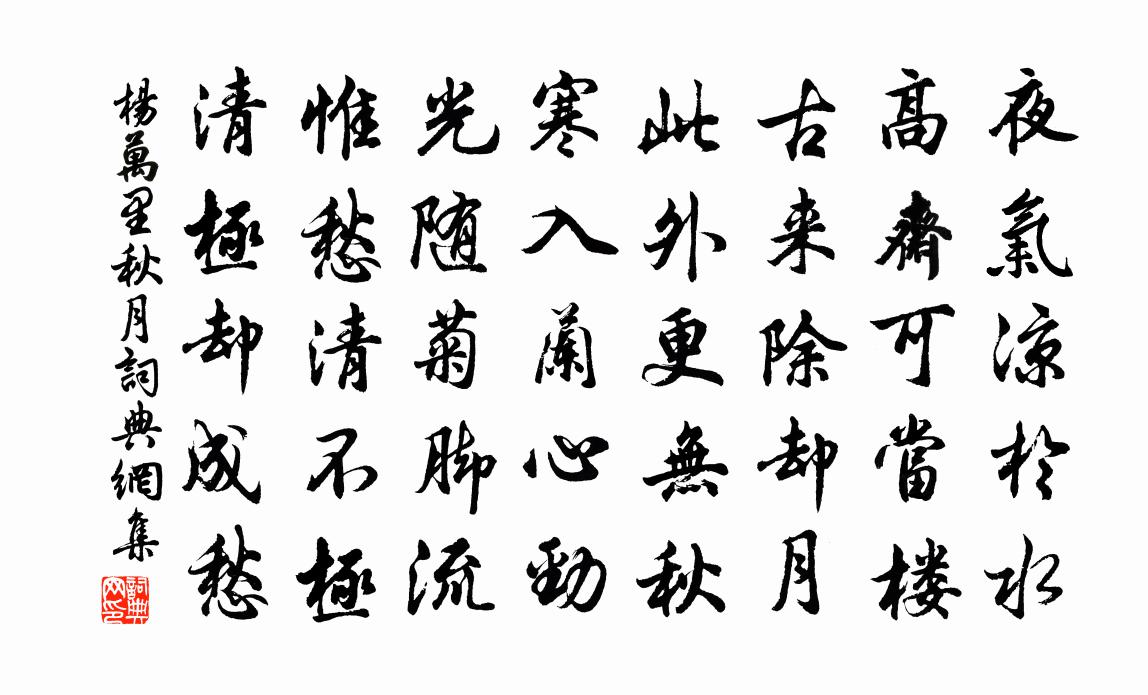 夜氣涼於水
高齋可當楼
古来除却月
此外更無秋
寒入蘭心勁
光随菊脚流
惟愁清不極
清極却成愁
楊萬里秋月詞典網集
詞典網印